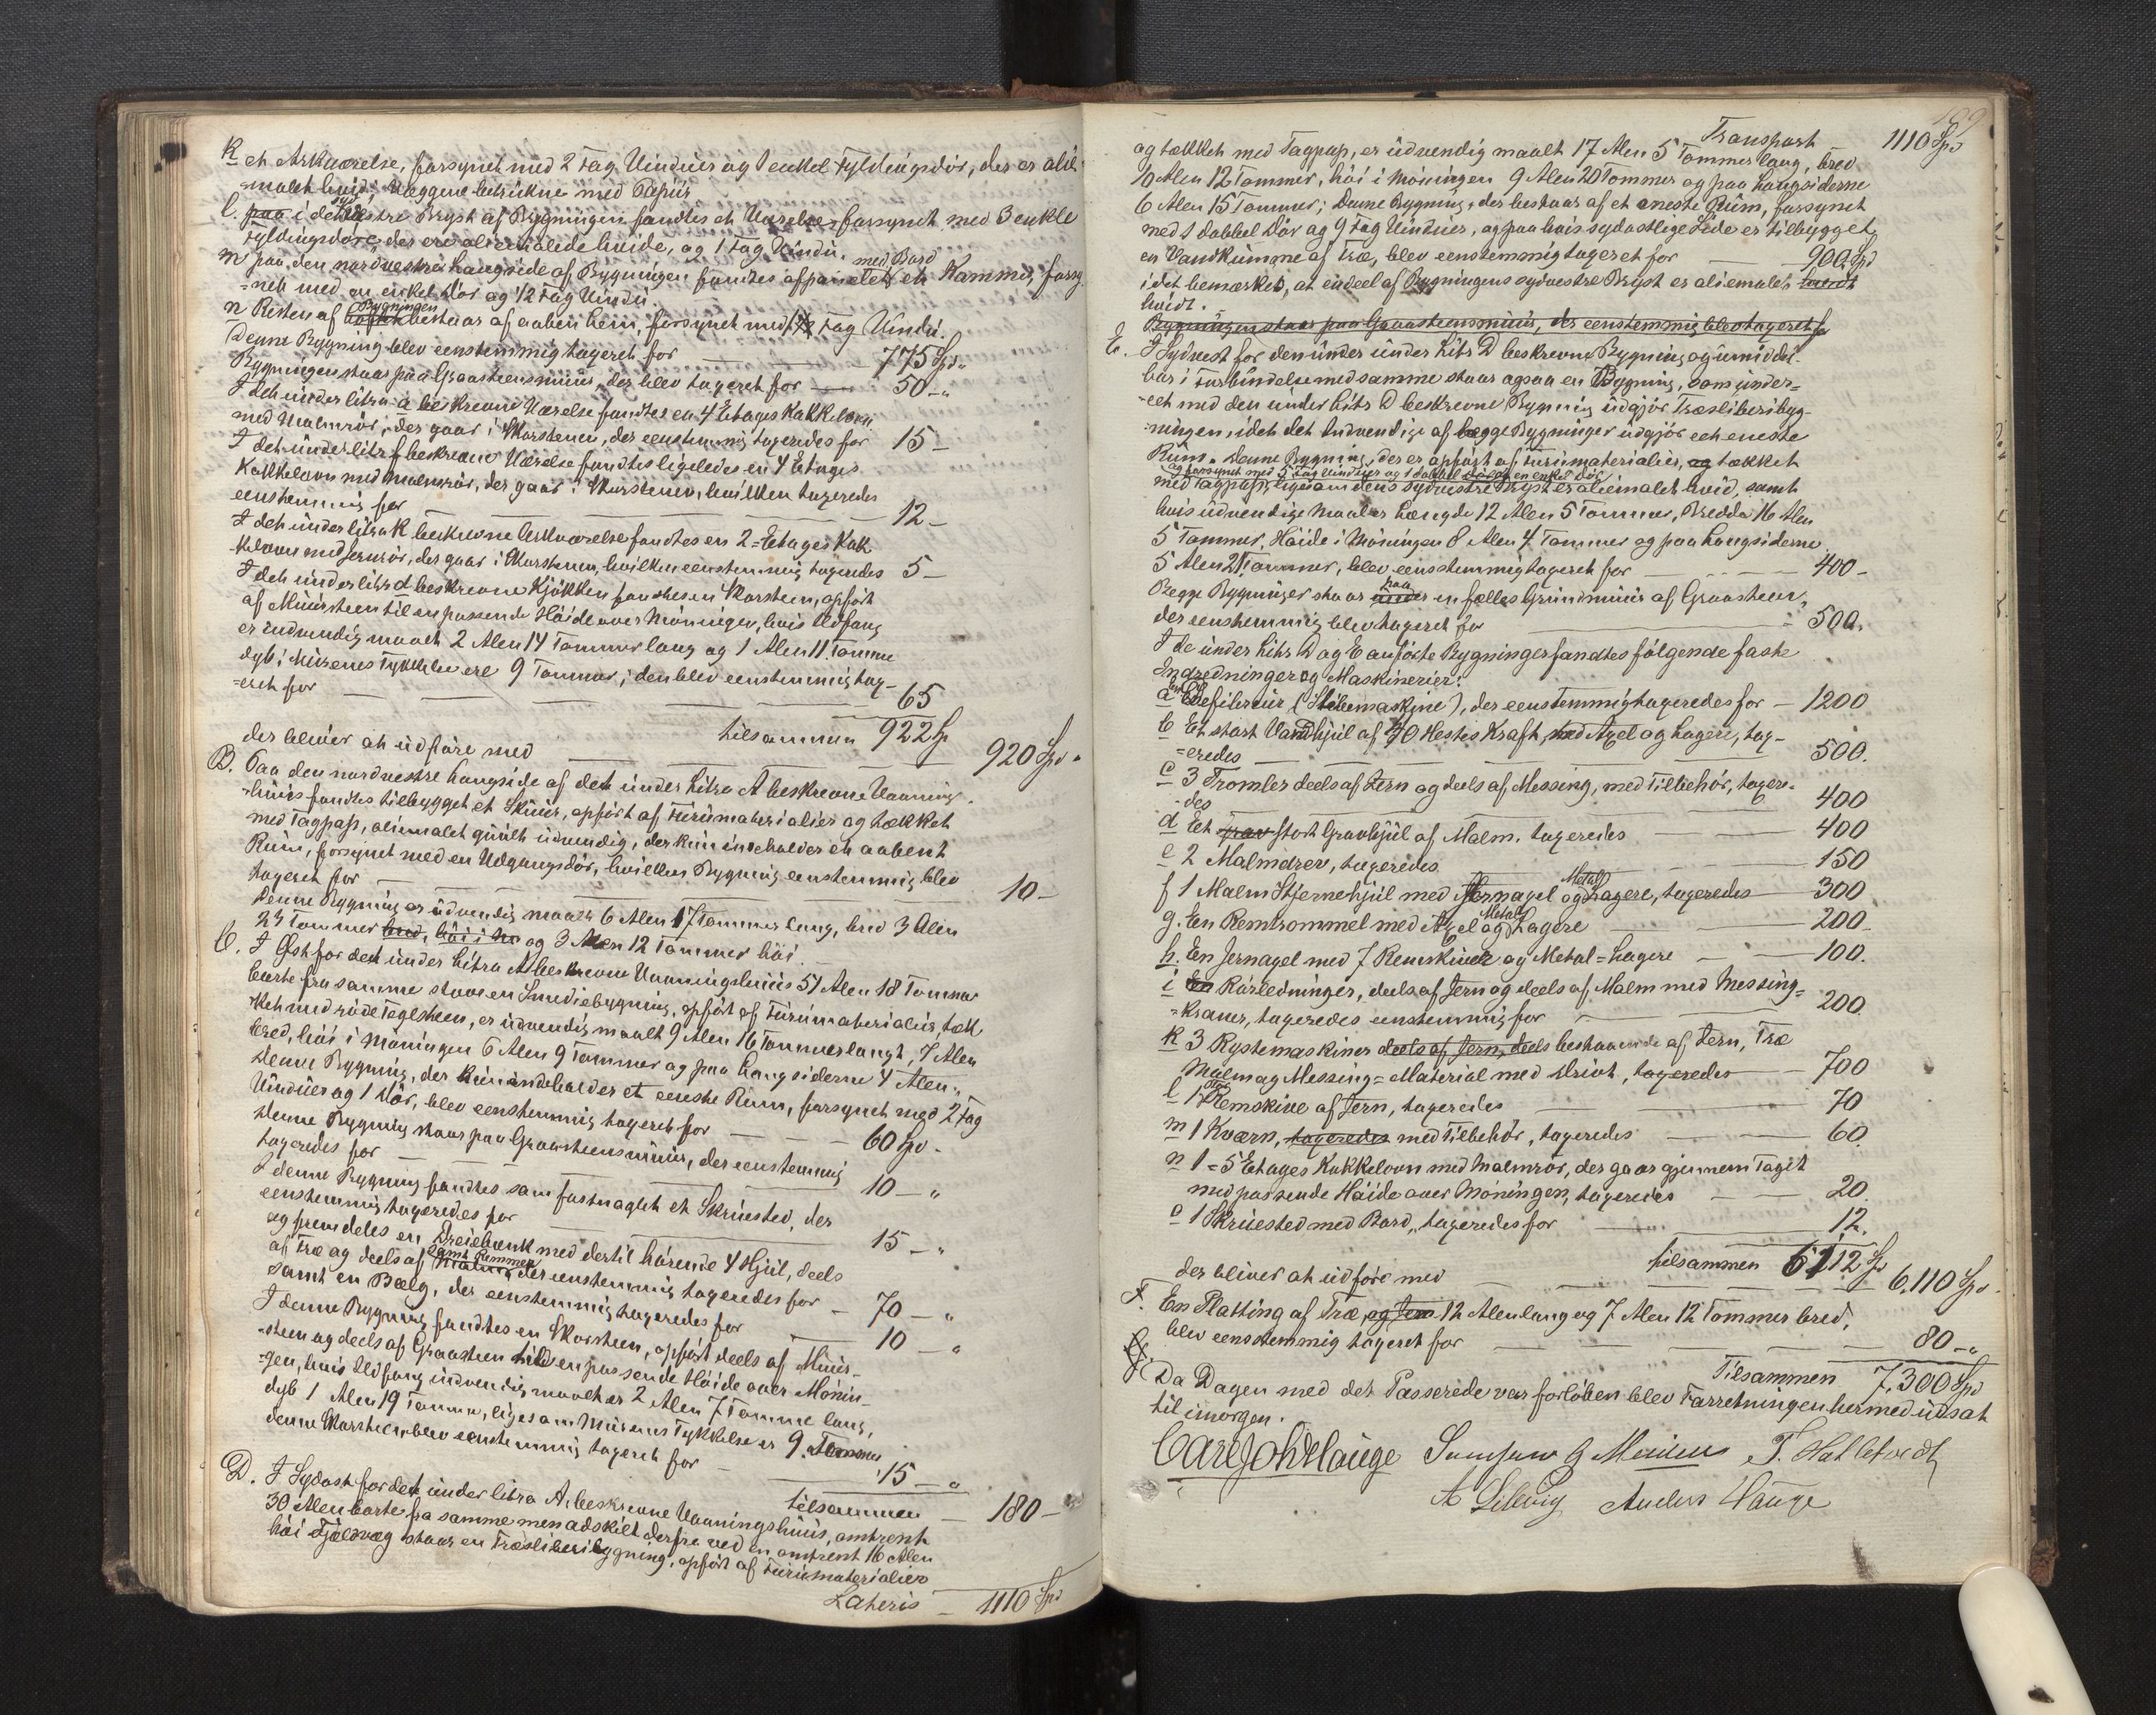 K et Arkværelse, forsynet med 2 Fag Vinduer og 1 enkel Fyldingsdör, der er olie-
=malet hvid; Væggene betrukne med Papiir
l. paa i det sydvestre Bryst af Bygningen fandtes et Værelse forsynet med 3 enkle
Fyldingsdöre, der ere oliemalede hvide, og 1 Fag Vindu.
m paa den nordvestre Langside af Bygningen fandtes afpanelet med Bord et Kammer, forsy-
=net med en enkel Dör og 1/2 Fag Vindu.
n Resten af Loftet Bygningen bestaar af aaben Lem, forsynet med 1/2 Fag Vindu.
Denne Bygning blev eenstemmig taxeret for — 775 Spd„
Bygningen staar paa Graasteensmuur, der blev taxeret for — 50 - „
I det under litra a beskrevne Værelse fandtes en 4 Etages Kakkelovn
med Malmrör, der gaar i Skorstenen, der eenstemmig taxeredes for 15 -
I det under litr f beskrevne Værelse fandtes ligeledes en 4 Etages
Kakkelovn med Malmrör, der gaar i Skorstenen, hvilken taxeredes
eenstemmig for — 12 -
I det under litra K beskrevne Arkværelse fandtes en 2=Etages Kak-
kelovn med Jernrör, der gaar i Skorstenen, hvilken eenstemmig taxeredes 5 -
I det under litr d beskrevne Kjökken fandtes en Skorsteen, opfört
af Muursteen til en passende Höide over Möningen, hvis Ildfang
er indvendig maalt 2 Alen 14 Tommer lang og 1 Alen 11 Tomme
dyb; Murenes Tykkelse ere 9 Tommer; den blev eenstemmig tax-
=eret for — 65
tilsammen 922 Sp
der bliver at udföre med — 920 Spd „
B. Paa den nordvestre Langside af det under Litra A beskrevne Vaanings-
=huus fandtes tilbygget et Skuur, opfört af Furumaterialier og tækket
med Tagpap, oliemalet guult udvendig, der kun indeholder et aabent
Rum, forsynet med en Udgangsdör, hvilken Bygning eenstemmig blev
taxeret for — 10 -
Denne Bygning er udvendig maalt 6 Alen 17 Tommer lang, bred 3 Alen
23 Tommer bred, höi i M og 3 Alen 12 Tommer höi.
C. I Öst for det under Litra A beskrevne Vaaningshuus 51 Alen 18 Tommer
borte fra samme staar en Smediebygning, opfört af Furumaterialier, tæk-
ket med röde Teglsteen, er udvendig maalt 9 Alen 16 Tommer langt, 7 Alen
bred, höi i Möningen 6 Alen 9 Tommer og paa Langsiderne 4 Alen.
Denne Bygning, der kun indeholder et eeneste Rum, forsynet med 2 Fag
Vinduer og 1 Dör, blev eenstemmig taxeret for — 60 Spd -
Denne Bygning staar paa Graasteensmuur, der eenstemmig
taxeredes for — 10 - „
I denne Bygning fandtes som fastnaglet et Skruested, der
eenstemmig taxeredes for — 15 - „
og fremdeles en Dreiebænk med dertil hörende 4 Hjul, deels
af Træ og deels af Malm, samt Remmer der eenstemmig taxeredes for — 70 - „
samt en Bælg, der eenstemmig taxeredes for — 10 - „
I denne Bygning fandtes en Skorsteen, opfört deels af Muur-
=steen og deels af Graasteen til en passende Höide over Mönin-
=gen, hvis Ildfang indvendig maalt er 2 Alen 7 Tomme lang,
dyb 1 Alen 19 Tomme, ligesom Murenes Tykkelse er 9 Tommer
denne Skorsteen blev eenstemmig taxeret for — 15 - „
tilsammen — 180 -
D. I Sydost for det under litra A. beskrevne Vaaningshuus, omtrent
30 Alen borte fra samme men adskilt derfra ved en omtrent 16 Alen
höi Fjeldvæg staar en Træsliberibygning, opfört af Furumaterialier
Lateris — 1110 Spd
189
Transport 1110 Spd
og tækket med Tagpap, er udvendig maalt 17 Alen 5 Tommer lang, bred
10 Alen 12 Tommer, höi i Möningen 9 Alen 20 Tommer og paa Langsiderne
6 Alen 15 Tommer; Denne Bygning, der bestaar af et eneste Rum, forsynet
med 1 dobbel Dör og 9 Fag Vinduer, og paa hvis sydostlige Side er tilbygget,
en Vandkumme af Træ, blev eenstemmig taxeret for — 900 Spd
idet bemærkes, at en deel af Bygningens sydvestre Bryst er oliemalet hvidt
hvidt.
Bygningen staar paa Graasteensmuur, der eenstemmig blev taxeret for
E. I Sydvest for den under under Litr D beskrevne Bygning og umiddel-
bar i Forbindelse med samme staar ogsaa en Bygning, som under-
=eet med den under Litr D beskrevne Bygning udgjör Træsliberibyg-
=ningen, idet det Indvendige af begge Bygninger udgjör eet eneste
Rum. Denne Bygning, der er opfört af Furumaterialier, og tækket
og forsynet med 5 Fag Vinduer og 1 dobbel Dör og en enkel Dör
med Tagpap, ligesom dens sydvestre Bryst er oliemalet hvid, samt
hvis udvendige Maal er Længde 12 Alen 5 Tommer, Bredde 16 Alen
5 Tommer, Höide i Möningen 8 Alen 4 Tommer og paa Langsiderne
5 Alen 21 Tommer, blev eenstemmig taxeret for — 400 -
Begge Bygninger staar under paa en fælles Grundmuur af Graasteen,
der eenstemmig blev taxeret for — 500.
I de under Litr D og E anförte Bygninger fandtes fölgende faste
Indredninger og Maskinerier:
a En Defibreur (Slibemaskine), der eenstemmig taxeredes for — 1200
b Et stort Vandhjul af 40 Hestes Kraft, med Axel og Lagere, tax-
=eredes — 500.
c 3 Tromler deels af Jern og deels af Messing, med Tilbehör, taxere-
=des — 400
d Et stort Gravhjul af Malm, taxeredes — 400
e 2 Malmdrev, taxeredes — 150
f 1 Malm Stjernehjul med Jernaxel og Metal Lagere, taxeredes — 300
g. En Remtrommel med Axel og Metal Lagere — 200 -
h. En Jernaxel med 7 Remskiver og Metal=Lagere — 100.
i En Rörledninger, deels af Jern og deels af Malm med Messing=
=kraner, taxeredes eenstemmig for — 200
K 3 Rystemaskiner deels af Jern, deels bestaaende af Jern, Træ
Malm og Messing=Material med Drivt, taxeredes — 700
l 1 Remskive af Jern, taxeredes — 70
m 1 Kværn, taxeredes med Tilbehör, taxeredes — 60.
n 1=5 Etages Kakkelovn med Malmrör, der gaar gjennem Taget
med passende Höide over Möningen, taxeredes — 20.
o 1 Skruested med Bord, taxeredes for — 12.
tilsammen 6112 Sp
der bliver at udföre med — 6,110 Spd.
F. En Platting af Træ, og Jern 12 Alen lang og 7 Alen 12 Tommer bred,
blev eenstemmig taxeret for — 80 - „
Tilsammen 7,300 Spd
Da Dagen med det Passerede var forlöben blev Forretningen hermed udsat
til imorgen.
Carl Joh Hauge T. Hatletvedt
A Anders Hauge